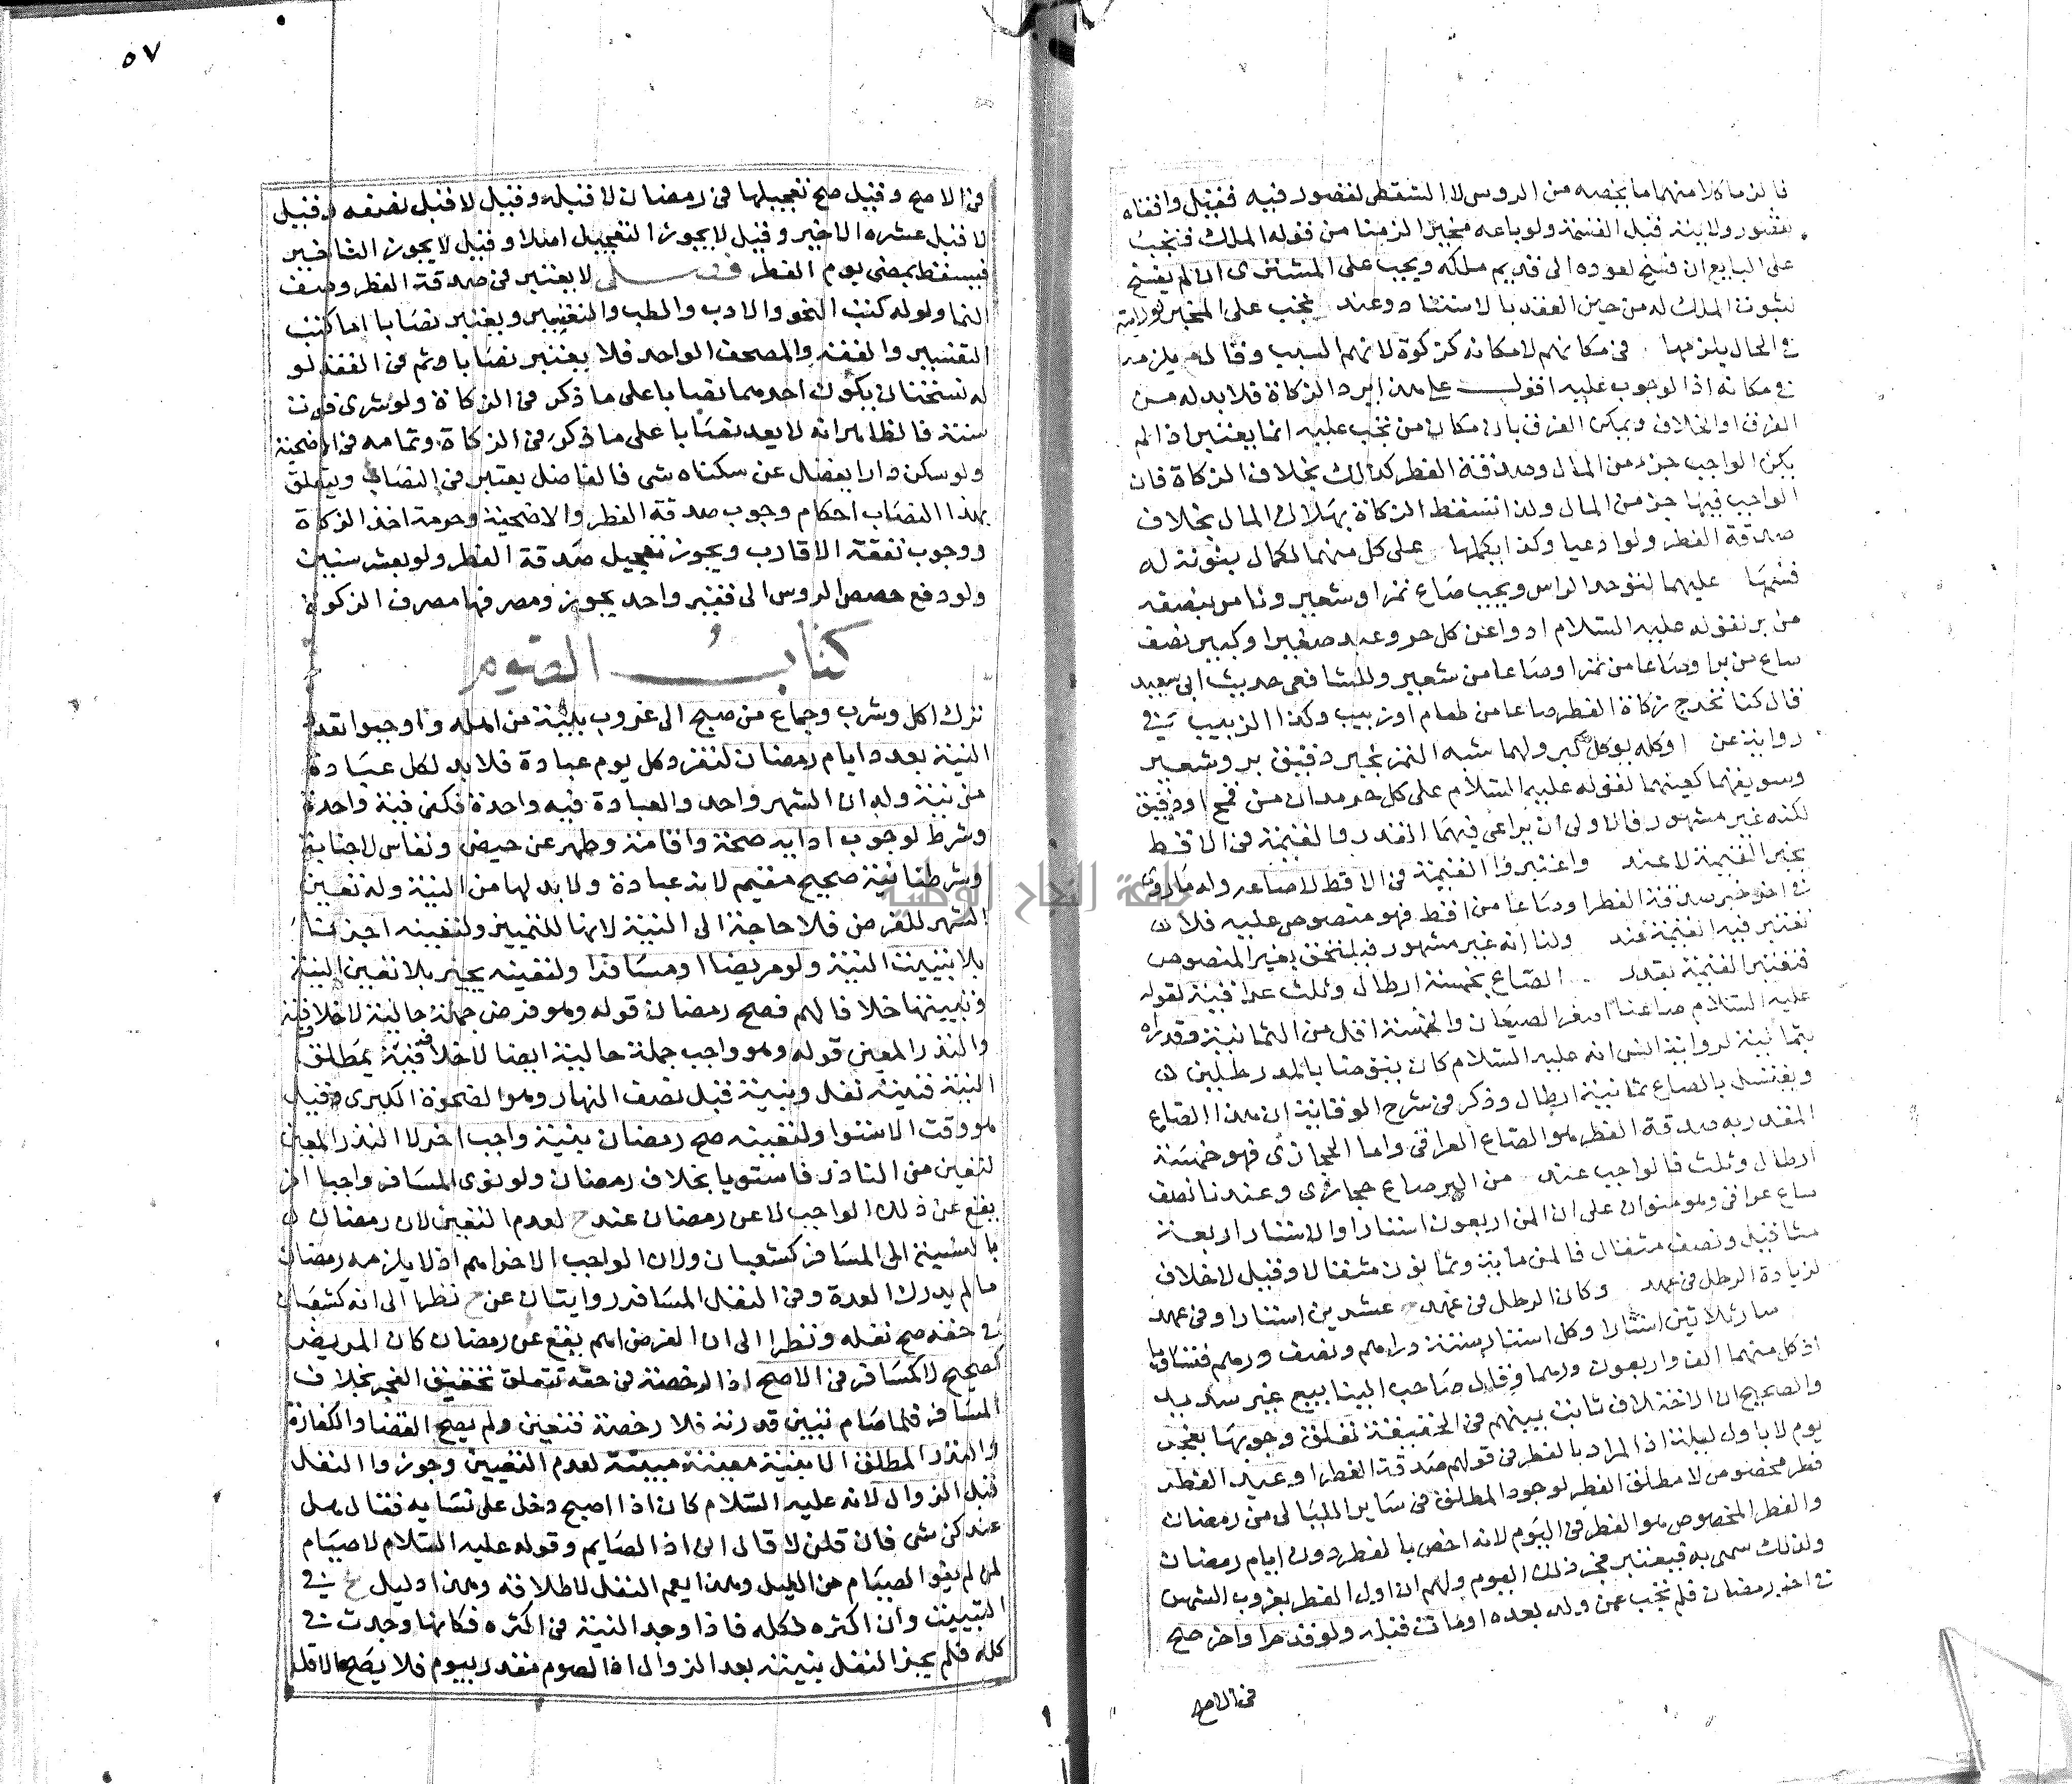 فالزما كلا منهما ما يخصه من الروس لا الشقص لقصور فيه فقيل وافقاه
على البايع ان فسخ لعوده الى قديم ملكه ويجب على المشترى ان لم يفسخ
لثبوت الملك له من حين العقد بالاستناد وعند يجب على المخير لولايته
فى الحال يلزمها فى مكانهم لامكانه كزكوة لانهم السبب وقالا يلزمه
فى مكانه اذ الوجوب عليه اقول على هذا يرد الزكاة فلا بد له من
الفرق او الخلاف ويمكن الفرق بان مكان من تجب عليه انما يعتبر اذا لم
يكن الواجب جزء من المال وصدقة الفطر كذلك بخلاف الزكاة فان
الواجب فيها جزء من المال ولذا تسقط الزكاة بهلاك المال بخلاف
صدقة الفطر ولو ادعيا وكذا بكملها على كل منهما لكمال بنوته له
قسمها عليهما لتوحد الراس ويجب صاع تمر او شعير ونامر بنصفه
من بر لقوله عليه السلام ادوا عن كل حر وعبد صغير او كبير نصف
صاع من بر او صاعا من تمر او صاعا من شعير وللشافعى حديث ابى سعيد
قال كنا نخرج زكاة الفطر صاعا من طعام او زبيب وكذا الزبيب فى
رواية عن اوكله يوكل كبر ولهما شبه التمر نخير دقيق بر وشعير
وسويقهما كعينهما لقوله عليه السلام على كل حر مدان من قمح او دقيق
لكنه غير مشهور فالاولى ان يراعى فيهما القدر والقيمة فى الاقط
نخير القيمة لا عند واعتبروا القيمة فى الاقط لا صاعه وله ما روى
فى اخر خبر صدقة الفطر او صاعا من اقط فهو منصوص عليه فلا
تعتبر فيه القيمة عند ولنا انه غير مشهور فيلتحق بغير المنصوص
فتعتبر القيمة نقدر الصاع بخمسة ارطال وثلث عراقية لقوله
عليه السلام صاعنا اصغر الصيعان والخمسة اقل من الثمانية وقدراه
بثمانية لرواية انس انه عليه السلام كان يتوضا بالمد رطلين
ويغتسل بالصاع ثمانية ارطال وذكر فى شرح الوقاية ان هذا الصاع
المقدر به صدقة الفطر هو الصاع العراقى واما الحجازى فهو خمسة
ارطال وثلث فالواجب عند من البر صاع حجازى وعندنا نصف
صاع عراقى وهو منوان على ان المن اربعون استارا والاستار اربعة
مثاقيل ونصف مثقال فالمن ماية وثمانون مثقالا وقيل لا خلاف
لزيادة الرطل فى عهد وكان الرطل فى عهد عشرين استارا وفى عهد
ثلاثين استارا وكل استار ستة دراهم ونصف درهم فتساويا
اذ كل منهما الف واربعون درهما وقال صاحب الينابيع غير سديد
والصحيح ان الاختلاف ثابت بينهم فى الحقيقة تعلق وجوبها بفجر
يوم لا باول ليلة اذ المراد بالفطر فى قولهم صدقة الفطر او عيد الفطر
فطر مخصوص لا مطلق الفطر لوجود المطلق فى ساير الليالى من رمضان
والفطر المخصوص هو الفطر فى اليوم لانه اخص بالفطر دون ايام رمضان
ولذلك سمى به فيعتبر فجر ذلك اليوم ولهم ان اول الفطر بغروب الشمس
فى اخر رمضان فلم تجب عمن ولد بعده او مات قبله ولو قدم او اخر صح
فى الاصح
٥٧
فى الاصح وقيل صح تعجيلها فى رمضان لا قبله وقيل لا قبل نصفه وقيل
لا قبل عشره الاخير وقيل لا يجوز التعجيل اصلا وقيل لا يجوز التاخير
فيسقط بمضى يوم الفطر فصل لا يعتبر فى صدقة الفطر وصف
النما ولو له كتب النحو والادب والطب والتعبير ويعتبر نصابا اما كتب
التفسير والفقه والمصحف الواحد فلا يعتبر نصابا وثم فى الفقه لو
له نسختان يكون احدهما نصابا على ما ذكر فى الزكاة ولو شرى قوت
سنة فالظاهر انه لا يعد نصابا على ما ذكر فى الزكاة وتمامه فى الاضحية
ولو سكن دارا يفضل عن سكناه شى فالفاضل يعتبر فى النصاب ويتعلق
بهذا النصاب احكام وجوب صدقة الفطر والاضحية وحرمة اخذ الزكاة
ووجوب نفقة الاقارب ويجوز تعجيل صدقة الفطر ولو بعشر سنين
ولو دفع حصص الروس الى فقير واحد يجوز ومصرفها مصرف الزكوة
كتاب الصوم
ترك اكل وشرب وجماع من صبح الى غروب بنية من اهله واوجبوا تعدد
النية بعدد ايام رمضان لتفرد كل يوم عبادة فلا بد لكل عبادة
من نية وله ان الشهر واحد والعبادة فيه واحدة فكفى نية واحدة
وشرط لوجوب ادايه صحة واقامة وطهر عن حيض ونفاس لا جنابة
وشرطنا نية صحيح مقيم لانه عبادة ولا بد لها من النية وله تعين
الشهر للفرض فلا حاجة الى النية لانها للتمييز ولتعينه اجزنا
بلا تبييت النية ولو مريضا او مسافرا ولتعينه يجير بلا تعيين النية
وتبييتها خلافا لهم فصح رمضان قوله وهو فرض جملة حالية لا خلافية
والنذر المعين قوله وهو واجب جملة حالية ايضا لا خلافية بمطلق
النية فنية نفل وبنية قبل نصف النهار وهو الضحوة الكبرى وقيل
هو وقت الاستوا ولتعينه صح رمضان بنية واجب اخر لا النذر المعين
لتعين من الناذر فاستويا بخلاف رمضان ولو نوى المسافر واجبا اخر
يقع عن ذلك الواجب لا عن رمضان عند ح لعدم التعين لان رمضان
بالنسبة الى المسافر كشعبان ولان الواجب الاخر اهم اذ لا يلزمه رمضان
ما لم يدرك العدة وفى النفل المسافر روايتان عن ح نظرا الى انه كشعبان
فى حقه صح نفله ونظرا الى ان الفرض اهم يقع عن رمضان كان المريض
كصحيح لا كمسافر فى الاصح اذ الرخصة فى حقه تتعلق بحقيقة العجز بخلاف
المسافر فلما صام تبين قدرته فلا رخصة فتعين ولم يصح القضا والكفارة
والنذر المطلق الا بنية معينة مبيتة لعدم التعيين وجوزوا النفل
قبل الزوال لانه عليه السلام كان اذا اصبح دخل على نسايه فقال هل
عندكن شى فان قلن لا قال انى اذا لصايم وقوله عليه السلام لا صيام
لمن لم ينو الصيام من الليل وهذا يعم النفل لاطلاقه وهذا دليل فى
التبييت وان اكثره لكله فاذا وجد النية فى اكثره فكانها وجدت فى
كله فلم يجز النفل بنيته بعد الزوال اذ الصوم مقدر بيوم فلا يصح الاقل
جامعة النجاح الوطنية